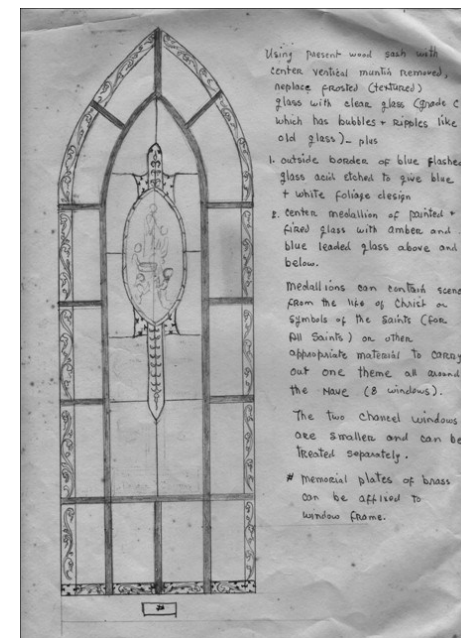 Using present wood sash with
center vertical muntin removed,
replace frosted (textured)
glass with clear glass (grade C
which has bubbles + Ripples like
old glass) - plus
1. outside border of blue flashed
glass acid etched to give blue
+ white foliage design
2. center medallion of painted +
fired glass with amber and
blue leaded glass above and
below.
Medallions can contain scene
from the life of Christ or
symbols of the Saints (for
All Saints) or other
appropriate material to carry
out one theme all around
the Nave (8 windows).
The two chancel windows
are smaller and can be
treated separately.
# memorial plates of brass
can be affixed to
window frame.